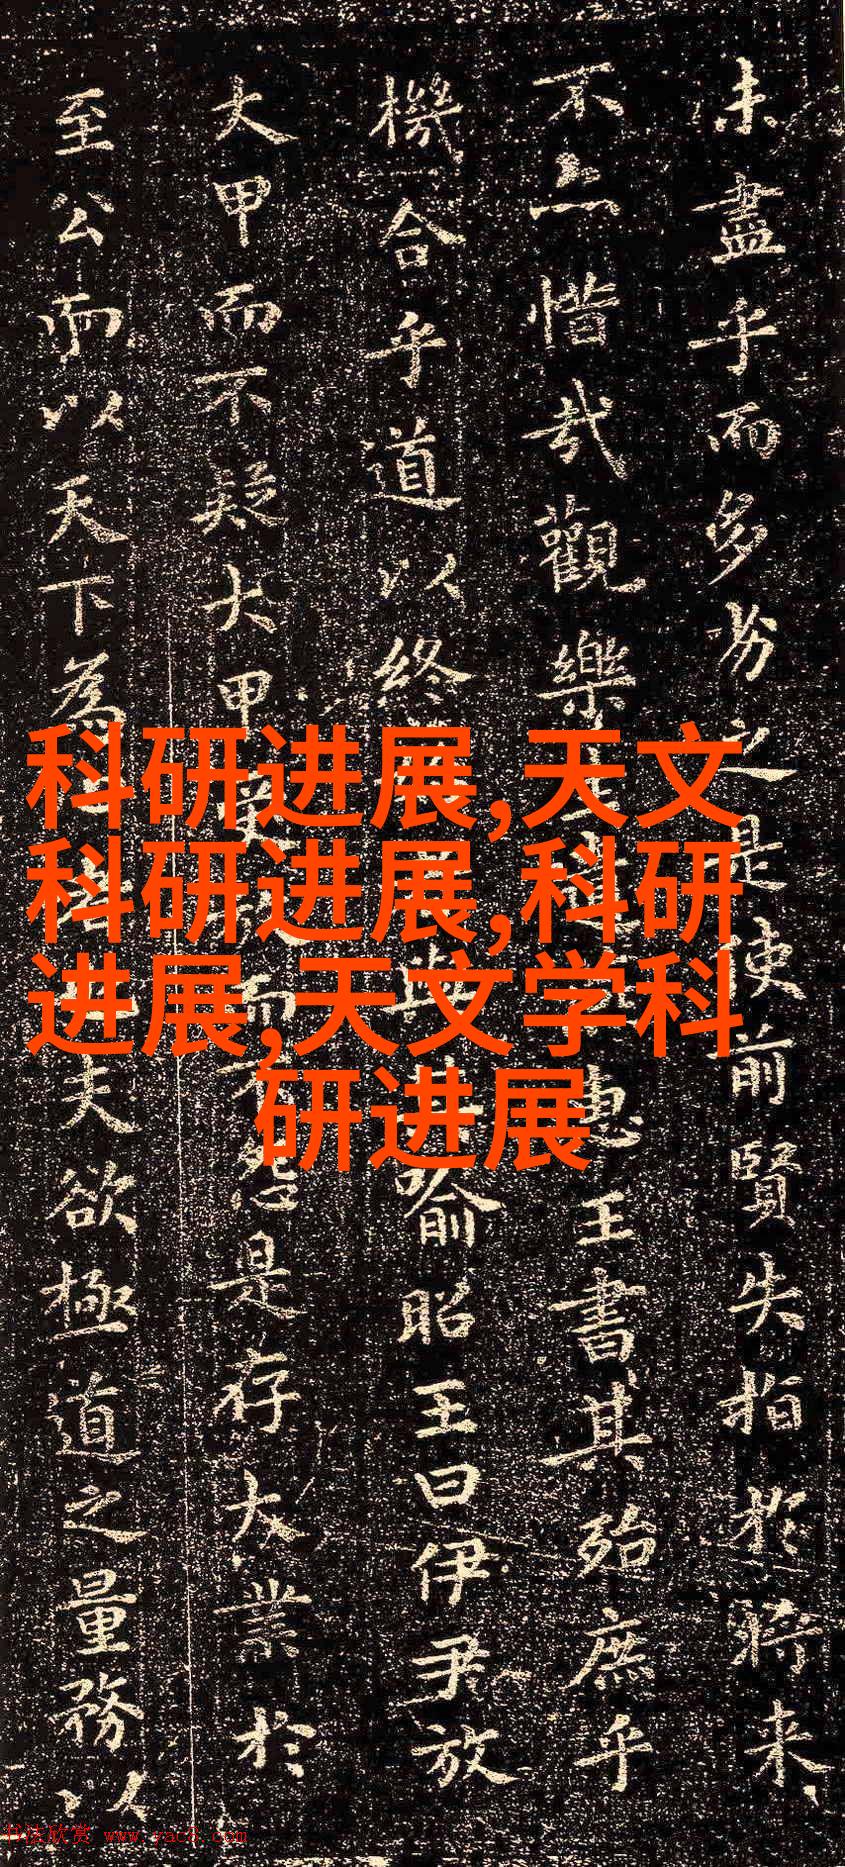 未盡乎而多劣之是使前賢失指於將来
不亦惜哉觀樂遺惠王書其殆庶乎
機合乎道以終與其喻昭王曰伊尹放
大甲而不疑大甲受而不怨是存大業於
至公而以天下為者夫欲極道之量務以
科研进展,天文
科研进展,科研
进展,天文学科
研进展
书法欣赏 www.yac8.com